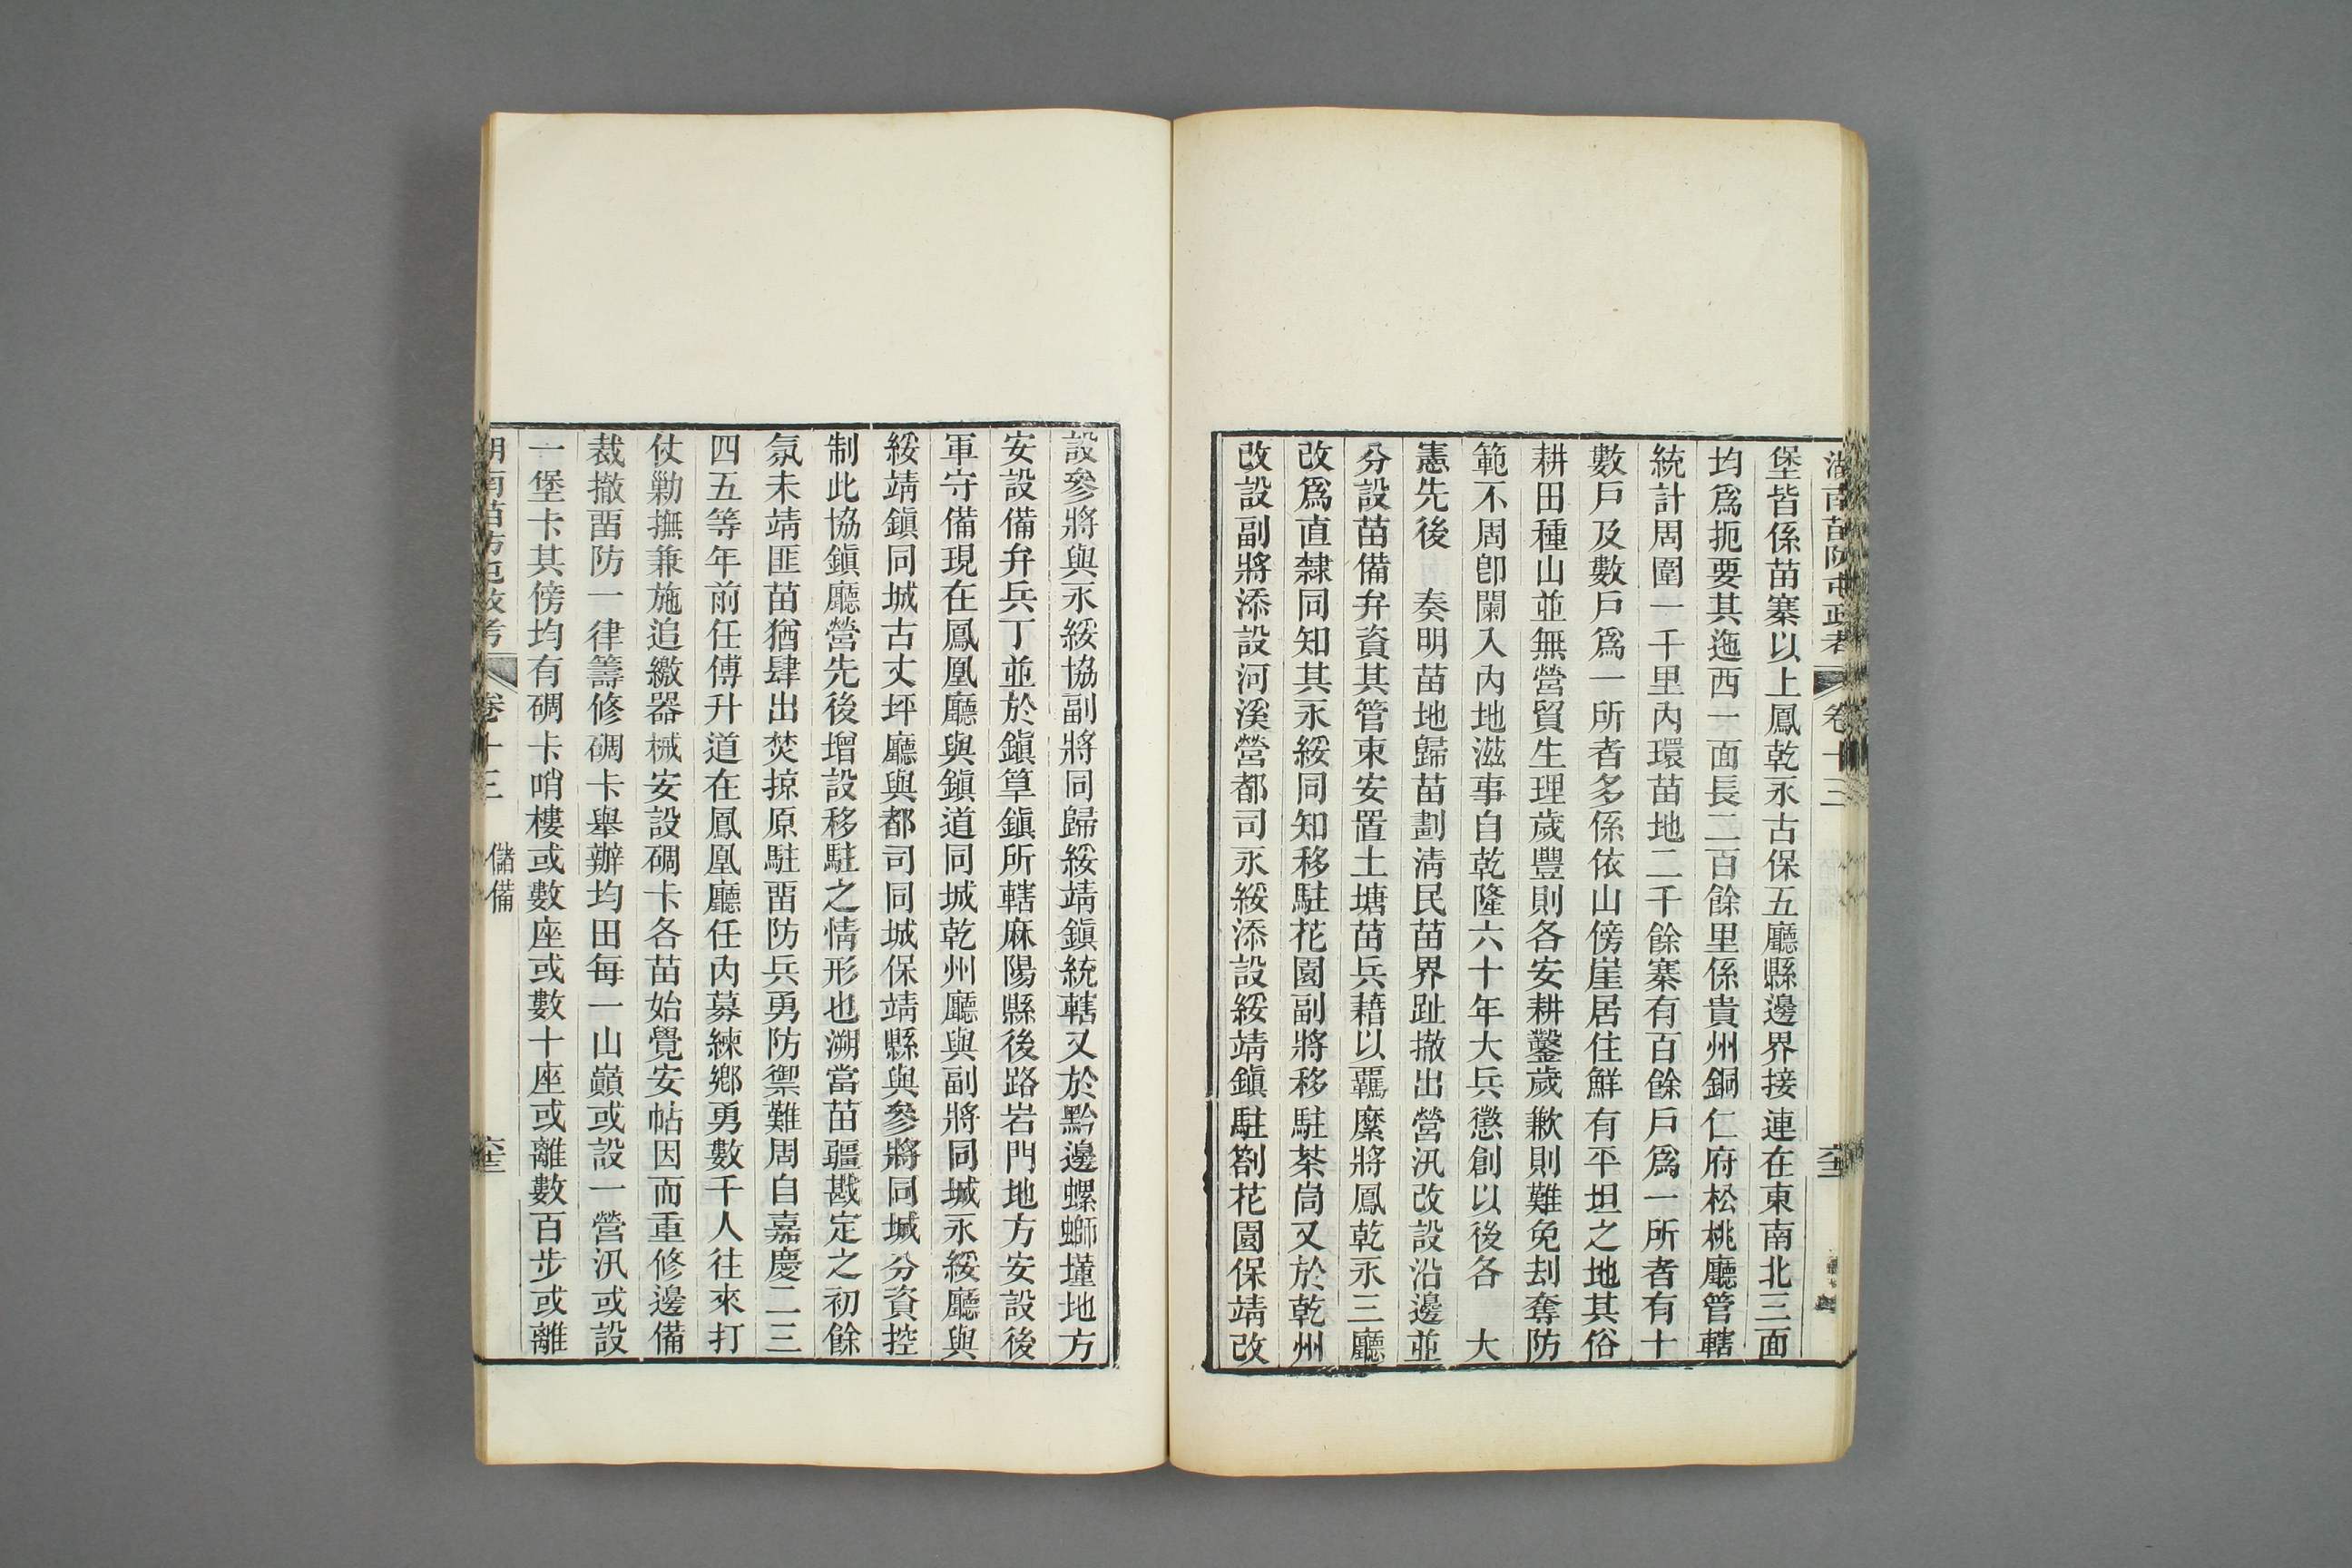 湖南苗防屯政考 卷十三
堡皆係苗寨以上鳳乾永古保五廳縣邊界接連在東南北三面
均爲扼要其迤西一面長二百餘里係貴州銅仁府松桃廳管轄
統計周圍一千里內環苗地二千餘寨有百餘戶爲一所者有十
數戶及數戶爲一所者多係依山傍崖居住鮮有平坦之地其俗
耕田種山並無營貿生理歲豐則各安耕鑿歲歉則難免刦奪防
範不周卽闌入內地滋事自乾隆六十年大兵懲創以後各 大
憲先後 奏明苗地歸苗劃淸民苗界趾撤出營汛改設沿邊並
分設苗備弁資其管束安置土塘苗兵藉以羈縻將鳳乾永三廳
改爲直隸同知其永綏同知移駐花園副將移駐茶峝又於乾州
改設副將添設河溪營都司永綏添設綏靖鎭駐劄花園保靖改
設參將與永綏協副將同歸綏靖鎭統轄又於黔邊螺螄墐地方
安設備弁兵丁並於鎭筸鎭所轄麻陽縣後路岩門地方安設後
軍守備現在鳳凰廳與鎭道同城乾州廳與副將同城永綏廳與
綏靖鎭同城古丈坪廳與都司同城保靖縣與參將同城分資控
制此協鎭廳營先後增設移駐之情形也溯當苗疆戡定之初餘
氛未靖匪苗猶肆出焚掠原駐畱防兵勇防禦難周自嘉慶二三
四五等年前任傅升道在鳳凰廳任內募練鄕勇數千人往來打
仗勦撫兼施追繳器械安設碉卡各苗始覺安帖因而重修邊備
裁撤畱防一律籌修碉卡舉辦均田每一山巓或設一營汛或設
一堡卡其傍均有碉卡哨樓或數座或數十座或離數百步或離
湖南苗防屯政考 卷十三 儲備